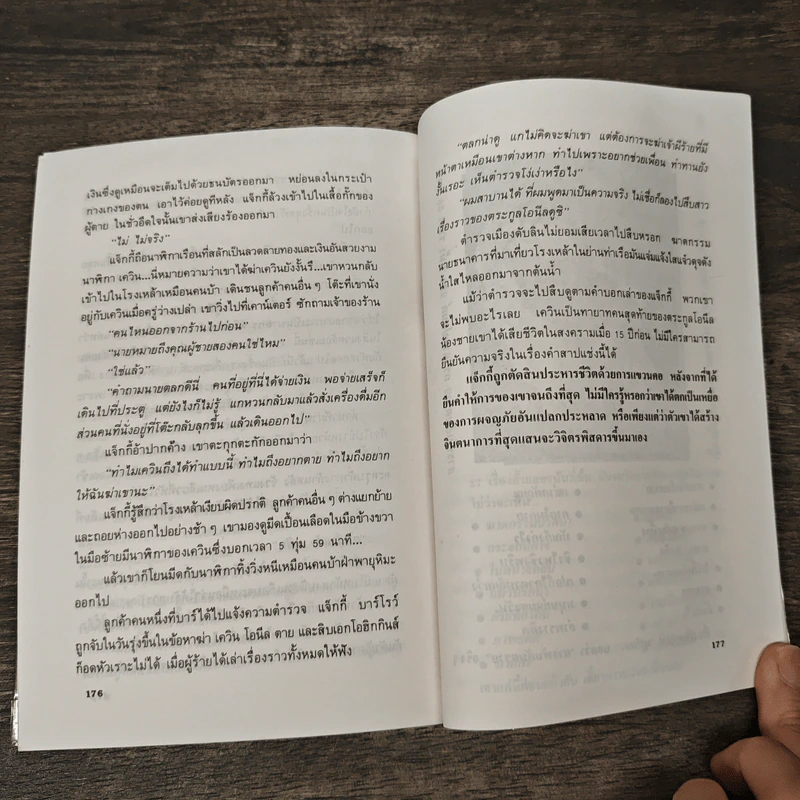 เงินซึ่งดูเหมือนจะเต็มไปด้วยธนบัตรออกมา หย่อนลงในกระเป๋า
กางเกงของตน เอาไว้ค่อยดูทีหลัง แจ็กกี้ล้วงเข้าไปในเสื้อกั๊กของ
ผู้ตาย ในชั่วอึดใจนั้นเขาส่งเสียงร้องออกมา
“ไม่ ไม่จริง”
แจ็กกี้ถือนาฬิกาเรือนที่สลักเป็นลวดลายทองและเงินอันสวยงาม
นาฬิกา เควิน...นี่หมายความว่าเขาได้ฆ่าเควินยังงั้นรึ...เขาหวนกลับ
เข้าไปในโรงเหล้าเหมือนคนบ้า เดินชนลูกค้าคนอื่น ๆ โต๊ะที่เขานั่ง
อยู่กับเควินเมื่อครู่ว่างเปล่า เขาวิ่งไปที่เคาน์เตอร์ ซักถามเจ้าของร้าน
“คนไหนออกจากร้านไปก่อน”
“นายหมายถึงคุณผู้ชายสองคนใช่ไหม”
“ใช่แล้ว”
“คำถามนายตลกดีนี่ คนที่อยู่ที่นี่ได้จ่ายเงิน พอจ่ายเสร็จก็
เดินไปที่ประตู แต่ยังไงก็ไม่รู้ แกหวนกลับมาแล้วสั่งเครื่องดื่มอีก
ส่วนคนที่นั่งอยู่ที่โต๊ะกลับลุกขึ้น แล้วเดินออกไป”
แจ็กกี้อ้าปากค้าง เขาตะกุกตะกักออกมาว่า
“ทำไมเควินถึงได้ทำแบบนี้ ทำไมถึงอยากตาย ทำไมถึงอยาก
ให้ฉันฆ่าเขานะ”
แจ็กกี้รู้สึกว่าโรงเหล้าเงียบผิดปรกติ ลูกค้าคนอื่น ๆ ต่างแยกย้าย
และถอยห่างออกไปอย่างช้า ๆ เขามองดูมีดเปื้อนเลือดในมือข้างขวา
ในมือซ้ายมีนาฬิกาของเควินซึ่งบอกเวลา 5 ทุ่ม 59 นาที...
แล้วเขาก็โยนมีดกับนาฬิกาทิ้งวิ่งหนีเหมือนคนบ้าฝ่าพายุหิมะ
ออกไป
ลูกค้าคนหนึ่งที่บาร์ได้ไปแจ้งความตำรวจ แจ็กกี้ บาร์โรว์
ถูกจับในวันรุ่งขึ้นในข้อหาฆ่า เควิน โอนีล ตาย และสิบเอกโอฮิกกินส์
ก็อดหัวเราะไม่ได้ เมื่อผู้ร้ายได้เล่าเรื่องราวทั้งหมดให้ฟัง
176
“ตลกน่าดู แกไม่คิดจะฆ่าเขา แต่ต้องการจะฆ่าเจ้าผีร้ายที่มี
หน้าตาเหมือนเขาต่างหาก ทำไปเพราะอยากช่วยเพื่อน ทำทานยัง
งั้นเรอะ เห็นตำรวจโง่เง่าหรือไง”
“ผมสาบานได้ ที่ผมพูดมาเป็นความจริง ไม่เชื่อก็ลองไปสืบสาว
เรื่องราวของตระกูลโอนีลดูซิ”
ตำรวจเมืองดับลินไม่ยอมเสียเวลาไปสืบหรอก ฆาตกรรม
นายธนาคารที่มาเที่ยวโรงเหล้าในย่านท่าเรือมันแจ่มแจ้งใสแจ๋วดุจดัง
น้ำใสไหลออกมาจากต้นน้ำ
แม้ว่าตำรวจจะไปสืบดูตามคำบอกเล่าของแจ็กกี้ พวกเขา
จะไม่พบอะไรเลย เควินเป็นทายาทคนสุดท้ายของตระกูลโอนีล
น้องชายเขาได้เสียชีวิตในสงครามเมื่อ 15 ปีก่อน ไม่มีใครสามารถ
ยืนยันความจริงในเรื่องคำสาปแช่งนี้ได้
แจ็กกี้ถูกตัดสินประหารชีวิตด้วยการแขวนคอ หลังจากที่ได้
ยืนคำให้การของเขาจนถึงที่สุด ไม่มีใครรู้หรอกว่าเขาได้ตกเป็นเหยื่อ
ของการผจญภัยอันแปลกประหลาด หรือเพียงแต่ว่าตัวเขาได้สร้าง
จินตนาการที่สุดแสนจะวิจิตรพิสดารขึ้นมาเอง
177